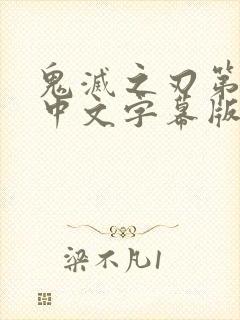 鬼灭之刃第
中文字幕版
梁不凡1